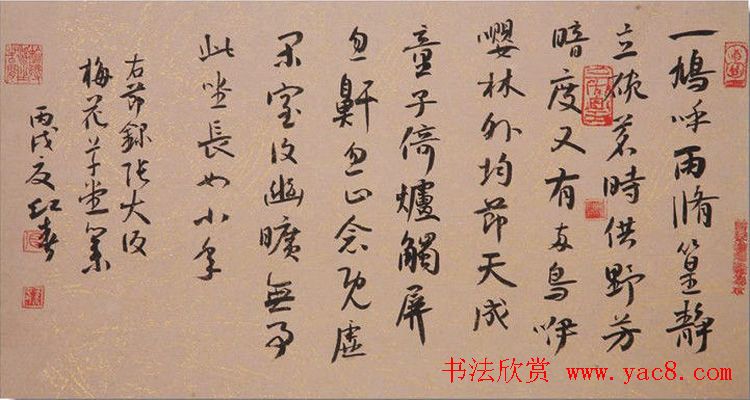 一鳩呼雨脩篁靜
立碗茗時供野芳
暗度又有兩鳥咿
嚶林外均節天成
童子倚爐觸屏
忽鼾忽止念既虛
閑室復幽曠無事
此坐長如小年
右節錄張大復
梅花草堂
丙戌夏紅
书法欣赏 www.yac8.com